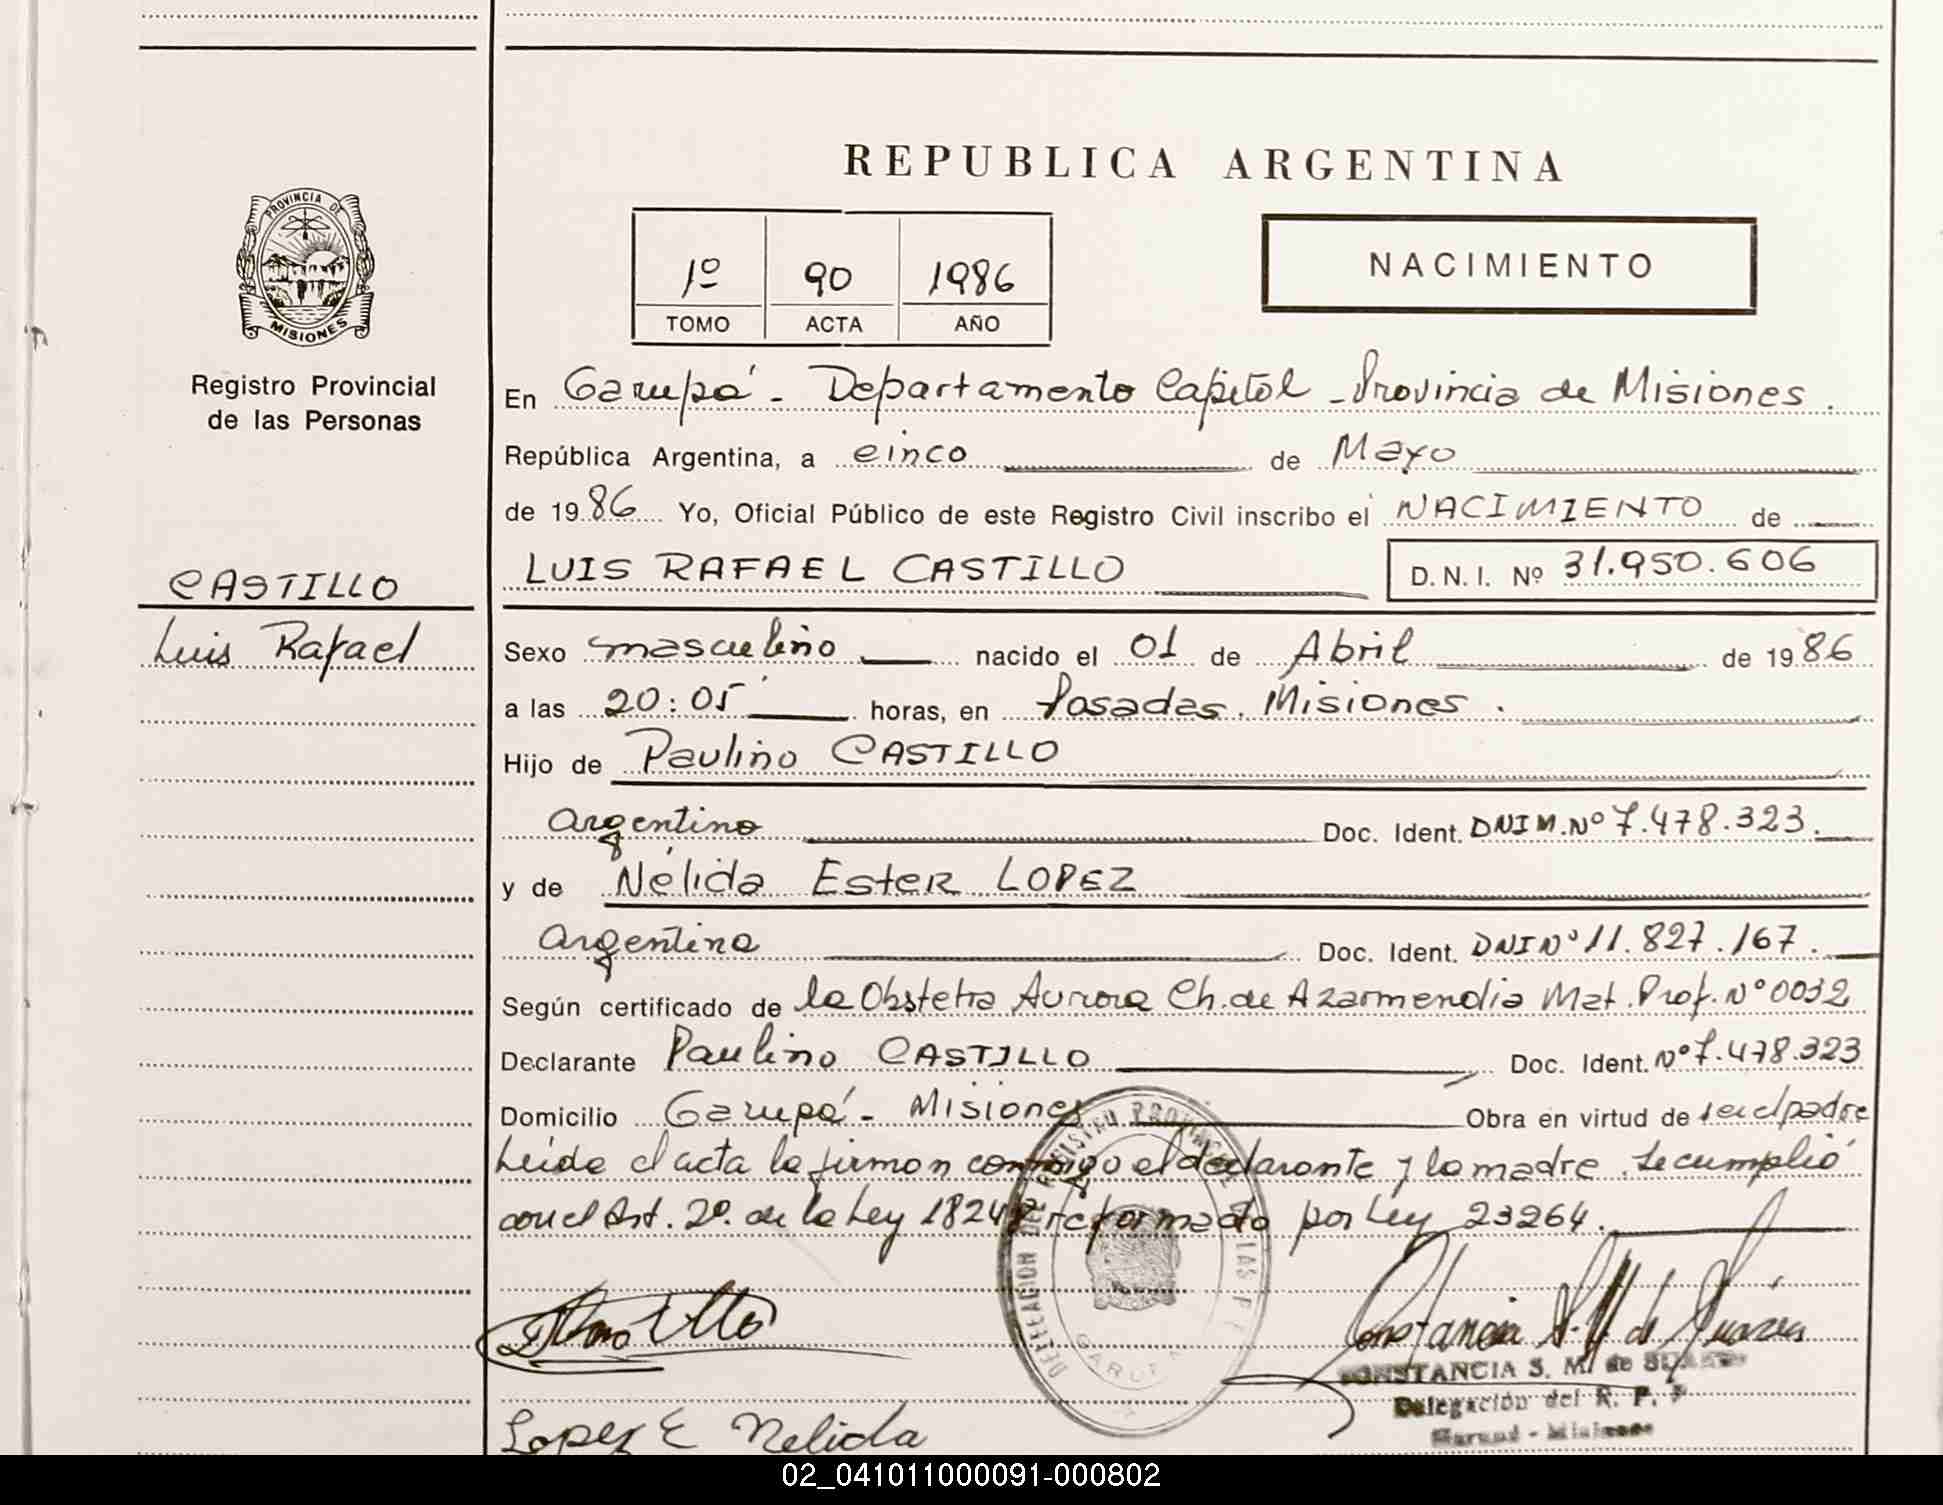 REPUBLICA ARGENTINA
PROVINCIA DE
MISIONES
Registro Provincial
de las Personas
1º 90 1986
TOMO ACTA AÑO
NACIMIENTO
En Garupá - Departamento Capital - Provincia de Misiones.
República Argentina, a cinco de Mayo
de 1986 Yo, Oficial Público de este Registro Civil inscribo el NACIMIENTO de
LUIS RAFAEL CASTILLO D.N.I. Nº 31.950.606
CASTILLO
Luis Rafael
Sexo masculino nacido el 01 de Abril de 1986
a las 20:05 horas, en Posadas. Misiones.
Hijo de Paulino CASTILLO
argentino Doc. Ident. DNIM.Nº 7.478.323.
y de Nélida Ester LOPEZ
argentina Doc. Ident. DNI Nº 11.827.167.
Según certificado de la Obstetra Aurora Ch. de Azarmendia Mat. Prof. Nº 0032
Declarante Paulino CASTILLO Doc. Ident. Nº 7.478.323
Domicilio Garupá - Misiones Obra en virtud de ser el padre
Leída el acta la firman conmigo el declarante y la madre. Se cumplió
con el Art. 2º. de la Ley 18248 reformado por Ley 23264.
DELEGACION DEL REGISTRO PROVINCIAL DE LAS P
GARUPA
Constancia S. M. de Suárez
CONSTANCIA S. M. de SUAREZ
Delegación del R. P. P
Garupá - Misiones
Lopez E Nelida
02_041011000091-000802